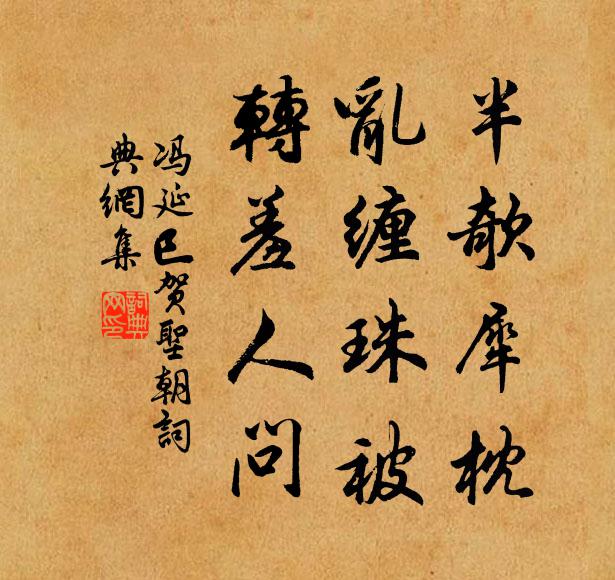 半欹犀枕
亂纏珠被
轉羞人問
冯延巳贺聖朝詞
典網集
詞典
网印